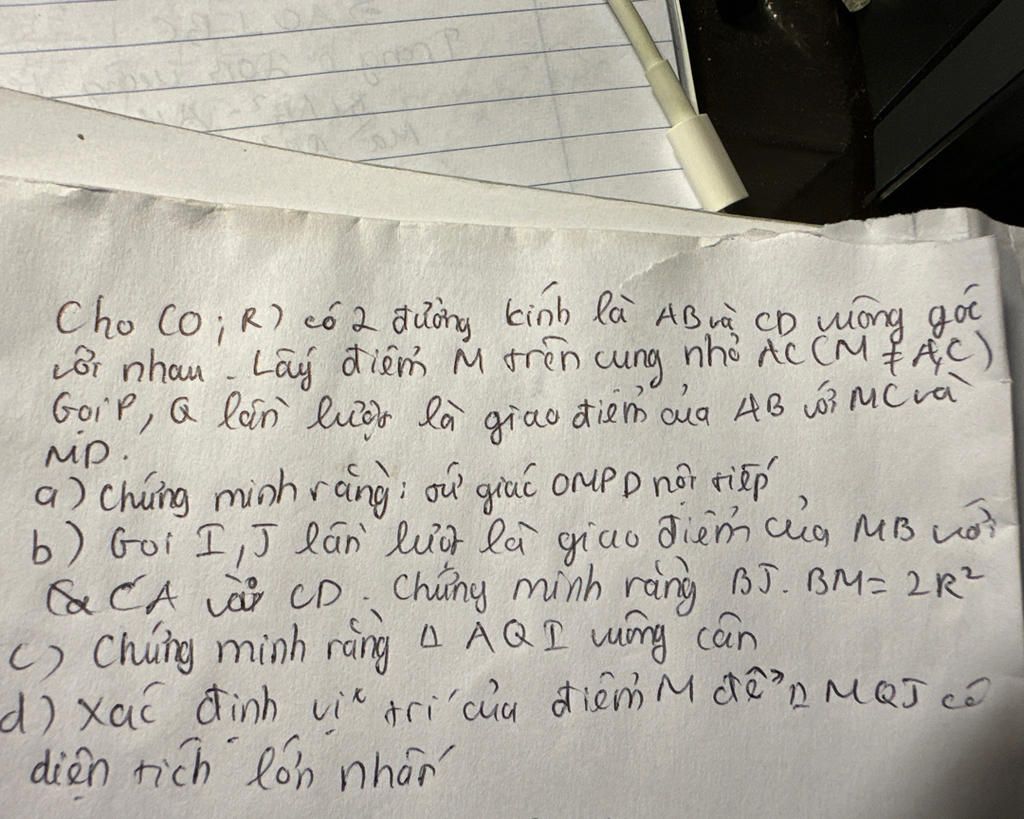 Cho (O; R) có 2 đường kính là AB và CD vuông góc
với nhau. Lấy điểm M trên cung nhỏ AC (M ≠ A, C)
Gọi P, Q lần lượt là giao điểm của AB với MC và
MD.
a) Chứng minh rằng: tứ giác OMPD nội tiếp
b) Gọi I, J lần lượt là giao điểm của MB với
CA và CD. Chứng minh rằng BJ. BM = 2R²
c) Chứng minh rằng Δ AQI vuông cân
d) Xác định vị trí của điểm M để Δ MQJ có
diện tích lớn nhất